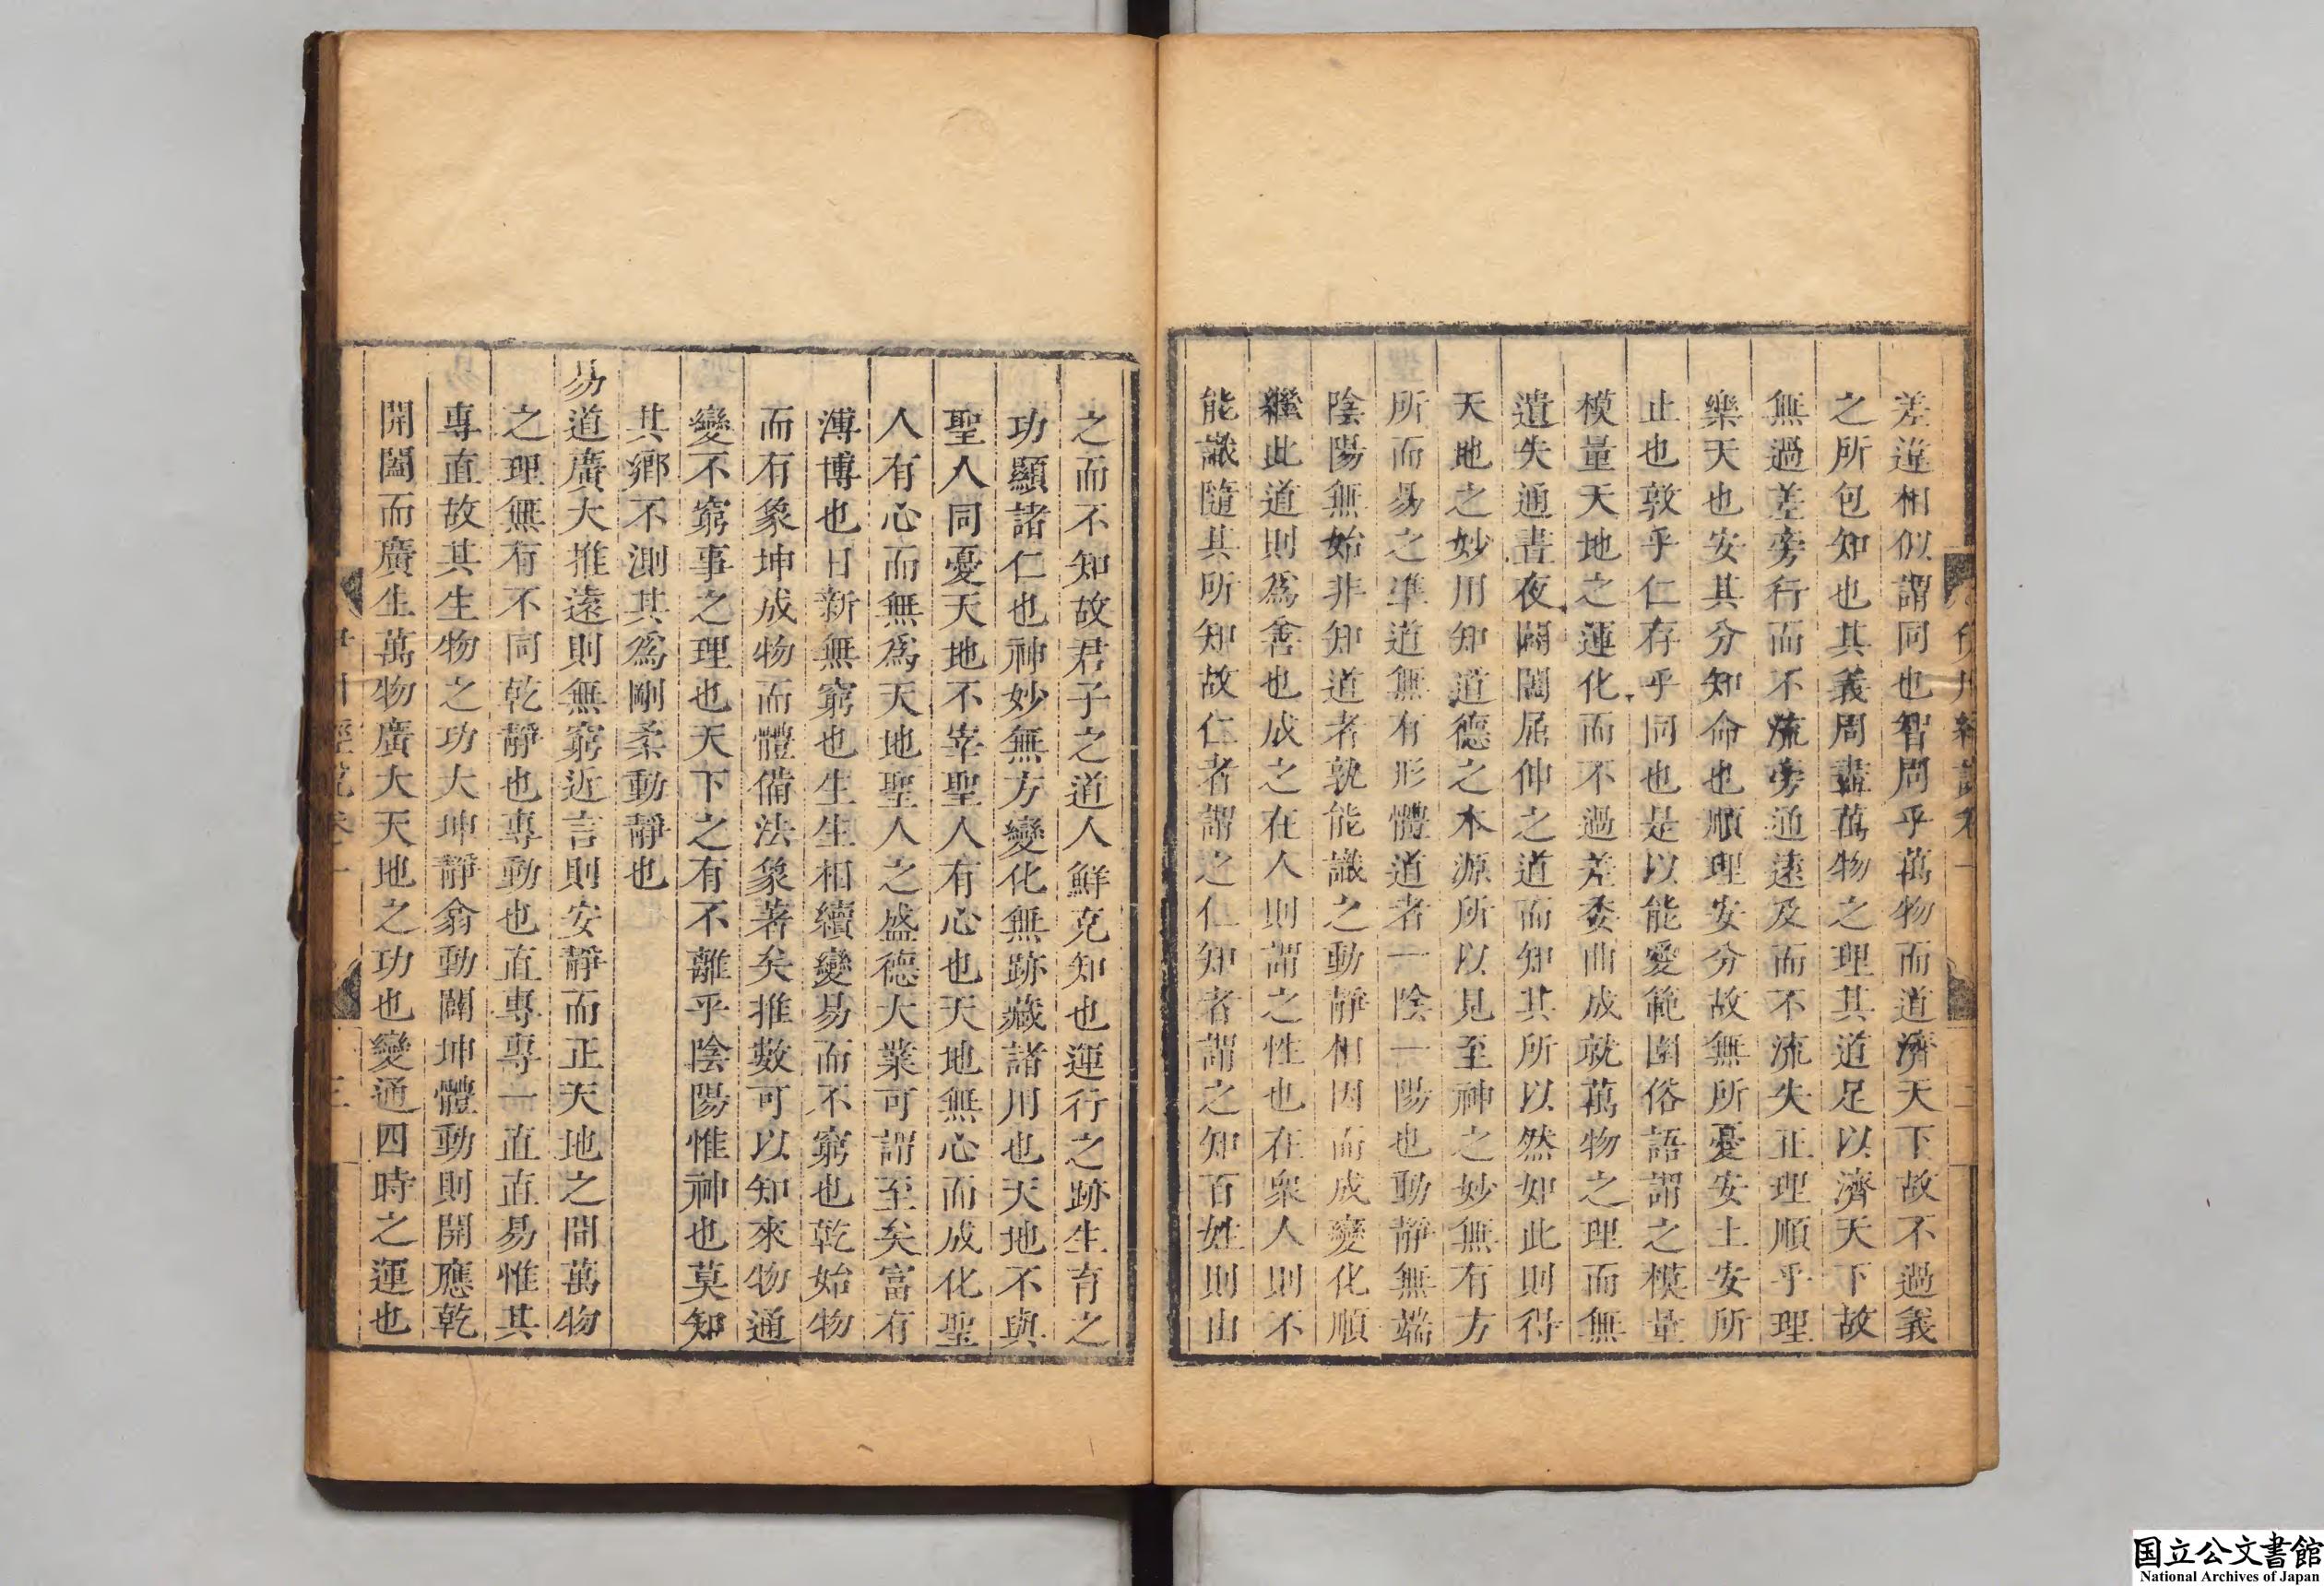 差違相似謂同也智周乎萬物而道濟天下故不過義
之所包知也其義周盡萬物之理其道足以濟天下故
無過差旁行而不流旁通遠及而不流失正理順乎理
樂天也安其分知命也順理安分故無所憂安土安所
止也敦乎仁存乎同也是以能愛範圍俗語謂之模量
模量天地之運化而不過差委曲成就萬物之理而無
遺失通晝夜闢闔屈伸之道而知其所以然如此則得
天地之妙用知道德之本源所以見至神之妙無有方
所而易之準道無有形體道者一陰一陽也動靜無端
陰陽無始非知道者孰能識之動靜相因而成變化順
繼此道則爲善也成之在人則謂之性也在衆人則不
能識隨其所知故仁者謂之仁知者謂之知百姓則由
之而不知故君子之道人鮮克知也運行之跡生育之
功顯諸仁也神妙無方變化無跡藏諸用也天地不與
聖人同憂天地不宰聖人有心也天地無心而成化聖
人有心而無爲天地聖人之盛德大業可謂至矣富有
溥博也日新無窮也生生相續變易而不窮也乾始物
而有象坤成物而體備法象著矣推數可以知來物通
變不窮事之理也天下之有不離乎陰陽惟神也莫知
其鄉不測其爲剛柔動靜也
易道廣大推遠則無窮近言則安靜而正天地之間萬物
之理無有不同乾靜也專動也直專專一直直易惟其
專直故其生物之功大坤靜翕動闢坤體動則開應乾
開闔而廣生萬物廣大天地之功也變通四時之運也
国立公文書館
National Archives of Japan